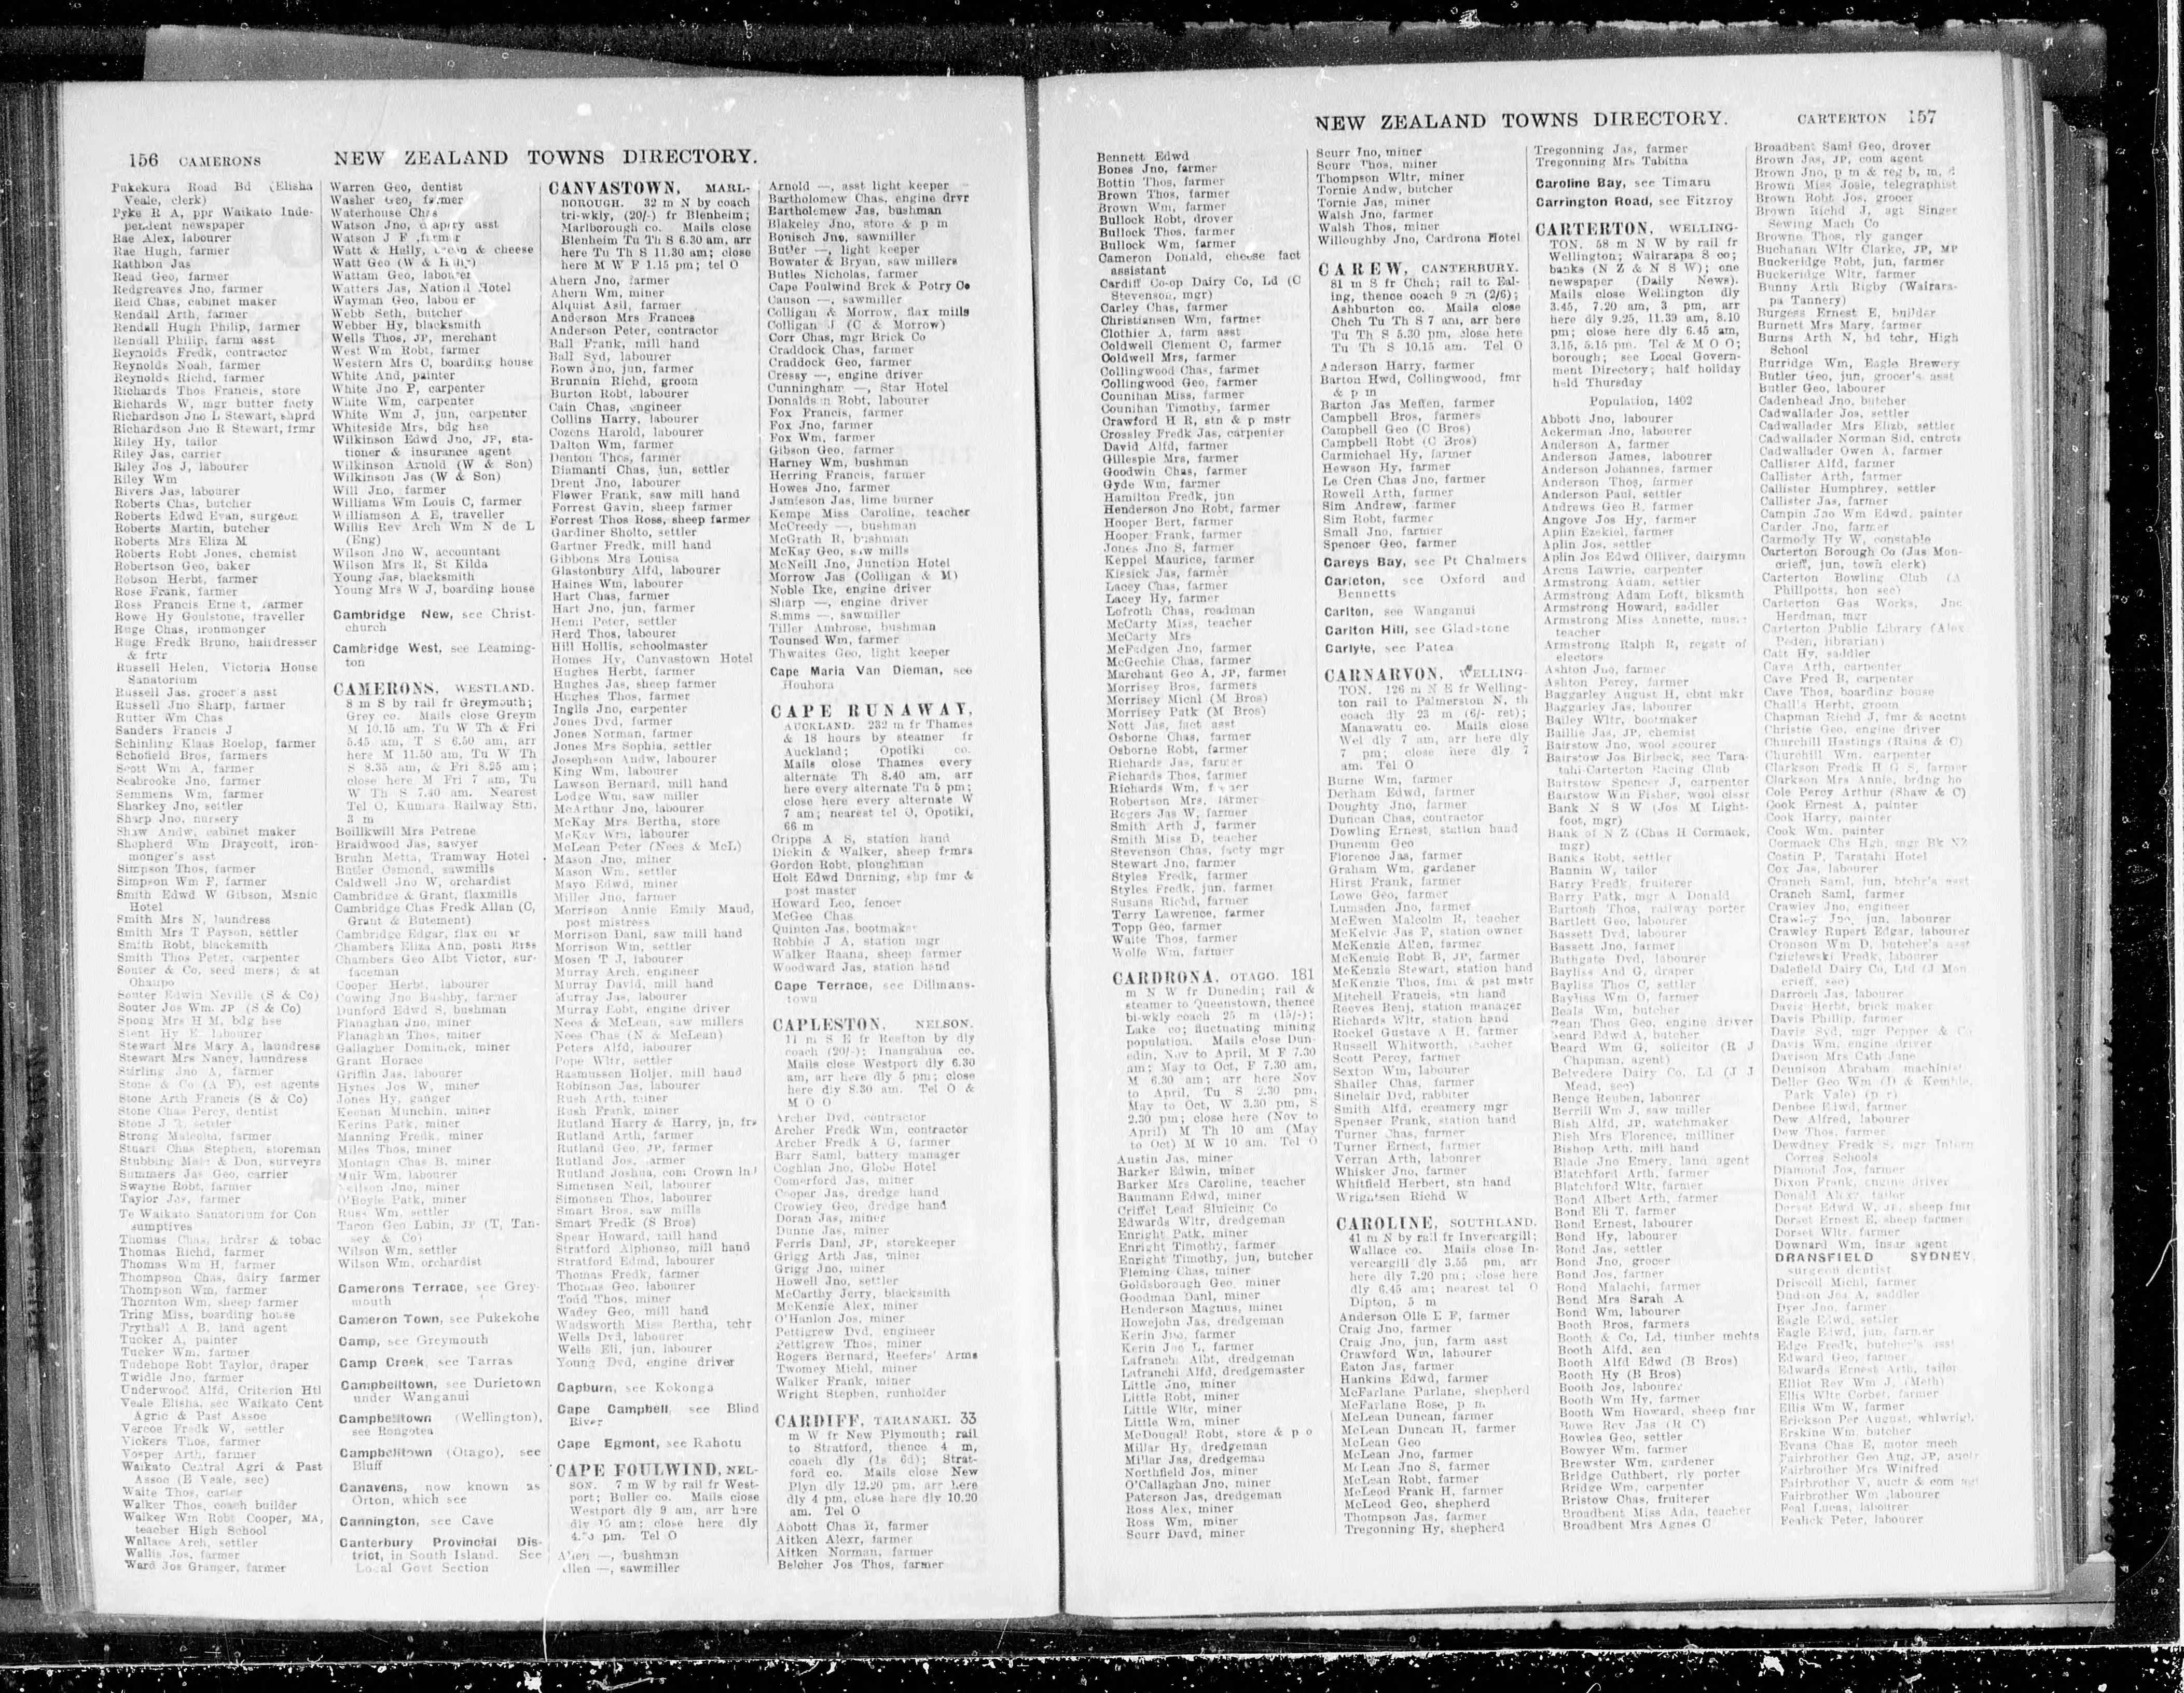 156 CAMERONS
NEW ZEALAND TOWNS DIRECTORY.
Pukekura Road Bd (Elisha
Veale, clerk)
Pyke R A, ppr Waikato Inde-
pendent newspaper
Rae Alex, labourer
Rae Hugh, farmer
Rathbon Jas
Read Geo, farmer
Redgreaves Jno, farmer
Reid Chas, cabinet maker
Rendall Arth, farmer
Rendall Hugh Philip, farmer
Rendall Philip, farm asst
Reynolds Fredk, contractor
Reynolds Noah, farmer
Reynolds Richd, farmer
Richards Thos Francis, store
Richards W, mgr butter facty
Richardson Jno L Stewart, shprd
Richardson Jno R Stewart, frmr
Riley Hy, tailor
Riley Jas, carrier
Riley Jos J, labourer
Riley Wm
Rivers Jas, labourer
Roberts Chas, butcher
Roberts Edwd Evan, surgeon
Roberts Martin, butcher
Roberts Mrs Eliza M
Roberts Robt Jones, chemist
Robertson Geo, baker
Robson Herbt, farmer
Rose Frank, farmer
Ross Francis Erne t, farmer
Rowe Hy Goulstone, traveller
Ruge Chas, ironmonger
Ruge Fredk Bruno, hairdresser
& frtr
Russell Helen, Victoria House
Sanatorium
Russell Jas, grocer's asst
Russell Jno Sharp, farmer
Rutter Wm Chas
Sanders Francis J
Schinling Klaas Roelop, farmer
Schofield Bros, farmers
Scott Wm A, farmer
Seabrooke Jno, farmer
Semmens Wm, farmer
Sharkey Jno, settler
Sharp Jno, nursery
Shaw Andw, cabinet maker
Shepherd Wm Draycott, iron-
monger's asst
Simpson Thos, farmer
Simpson Wm F, farmer
Smith Edwd W Gibson, Msnic
Hotel
Smith Mrs N, laundress
Smith Mrs T Payson, settler
Smith Robt, blacksmith
Smith Thos Peter, carpenter
Souter & Co, seed mers; & at
Ohaupo
Souter Edwin Neville (S & Co)
Souter Jos Wm, JP (S & Co)
Spong Mrs H M, bdg hse
Stent Hy E, labourer
Stewart Mrs Mary A, laundress
Stewart Mrs Nancy, laundress
Stirling Jno A, farmer
Stone & Co (A F), est agents
Stone Arth Francis (S & Co)
Stone Chas Percy, dentist
Stone J R, settler
Strong Malcolm, farmer
Stuart Chas Stephen, storeman
Stubbing & Don, surveyrs
Summers Jas Geo, carrier
Swayne Robt, farmer
Taylor Jas, farmer
Te Waikato Sanatorium for Con
sumptives
Thomas Chas, hrdrsr & tobac
Thomas Richd, farmer
Thomas Wm H, farmer
Thompson Chas, dairy farmer
Thompson Wm, farmer
Thornton Wm, sheep farmer
Tring Miss, boarding house
Trythall A B, land agent
Tucker A, painter
Tucker Wm, farmer
Tudehope Robt Taylor, draper
Twidle Jno, farmer
Underwood Alfd, Criterion Htl
Veale Elisha, sec Waikato Cent
Agric & Past Assoc
Vercoe Fredk W, settler
Vickers Thos, farmer
Vosper Arth, farmer
Waikato Central Agri & Past
Assoc (E Veale, sec)
Waite Thos, carter
Walker Thos, coach builder
Walker Wm Robt Cooper, MA,
teacher High School
Wallace Arch, settler
Wallis Jos, farmer
Ward Jos Granger, farmer
Warren Geo, dentist
Washer Geo, farmer
Waterhouse Chas
Watson Jno, drapery asst
Watson J F, farmer
Watt & Hally, bacon & cheese
Watt Geo (W & Hally)
Wattam Geo, labourer
Watters Jas, National Hotel
Wayman Geo, labourer
Webb Seth, butcher
Webber Hy, blacksmith
Wells Thos, JP, merchant
West Wm Robt, farmer
Western Mrs C, boarding house
White And, painter
White Jno P, carpenter
White Wm, carpenter
White Wm J, jun, carpenter
Whiteside Mrs, bdg hse
Wilkinson Edwd Jno, JP, sta-
tioner & insurance agent
Wilkinson Arnold (W & Son)
Wilkinson Jas (W & Son)
Will Jno, farmer
Williams Wm Louis C, farmer
Williamson A E, traveller
Willis Rev Arch Wm N de L
(Eng)
Wilson Jno W, accountant
Wilson Mrs R, St Kilda
Young Jas, blacksmith
Young Mrs W J, boarding house
Cambridge New, see Christ-
church
Cambridge West, see Leaming-
ton
CAMERONS, WESTLAND.
8 m S by rail fr Greymouth;
Grey co. Mails close Greym
M 10.15 am, Tu W Th & Fri
5.45 am, T S 6.50 am, arr
here M 11.50 am, Tu W Th
S 8.35 am, & Fri 8.25 am;
close here M Fri 7 am, Tu
W Th S 7.40 am. Nearest
Tel O, Kumara Railway Stn,
3 m
Boillkwill Mrs Petrene
Braidwood Jas, sawyer
Bruhn Metta, Tramway Hotel
Butler Osmond, sawmills
Caldwell Jno W, orchardist
Cambridge & Grant, flaxmills
Cambridge Chas Fredk Allan (C,
Grant & Butement)
Cambridge Edgar, flax
Chambers Eliza Ann, postmrss
Chambers Geo Albt Victor, sur-
faceman
Cooper Herbt, labourer
Cowing Jno Bushby, farmer
Dunford Edwd S, bushman
Flanaghan Jno, miner
Flanaghan Thos, miner
Gallagher Dominick, miner
Grant Horace
Griffin Jas, labourer
Hynes Jos W, miner
Jones Hy, ganger
Keenan Munchin, miner
Kerins Patk, miner
Manning Fredk, miner
Miles Thos, miner
Montagu Chas B, miner
Muir Wm, labourer
Neilson Jno, miner
O'Boyle Patk, miner
Russ Wm, settler
Tacon Geo Lubin, JP (T, Tan-
sey & Co)
Wilson Wm, settler
Wilson Wm, orchardist
Camerons Terrace, see Grey-
mouth
Cameron Town, see Pukekohe
Camp, see Greymouth
Camp Creek, see Tarras
Campbelltown, see Durietown
under Wanganui
Campbelltown (Wellington),
see Rongotea
Campbelltown (Otago), see
Bluff
Canavens, now known as
Orton, which see
Cannington, see Cave
Canterbury Provincial Dis-
trict, in South Island. See
Local Govt Section
CANVASTOWN, MARL-
BOROUGH. 32 m N by coach
tri-wkly, (20/-) fr Blenheim;
Marlborough co. Mails close
Blenheim Tu Th S 6.30 am, arr
here Tu Th S 11.30 am; close
here M W F 1.15 pm; tel O
Ahern Jno, farmer
Ahern Wm, miner
Alquist Axil, farmer
Anderson Mrs Frances
Anderson Peter, contractor
Ball Frank, mill hand
Ball Syd, labourer
Bown Jno, jun, farmer
Brunnin Richd, groom
Burton Robt, labourer
Cain Chas, engineer
Collins Harry, labourer
Cozens Harold, labourer
Dalton Wm, farmer
Denton Thos, farmer
Diamanti Chas, jun, settler
Drent Jno, labourer
Flower Frank, saw mill hand
Forrest Gavin, sheep farmer
Forrest Thos Ross, sheep farmer
Gardiner Sholto, settler
Gartner Fredk, mill hand
Gibbons Mrs Louisa
Glastonbury Alfd, labourer
Haines Wm, labourer
Hart Chas, farmer
Hart Jno, jun, farmer
Hemi Peter, settler
Herd Thos, labourer
Hill Hollis, schoolmaster
Homes Hy, Canvastown Hotel
Hughes Herbt, farmer
Hughes Jas, sheep farmer
Hughes Thos, farmer
Inglis Jno, carpenter
Jones Dvd, farmer
Jones Norman, farmer
Jones Mrs Sophia, settler
Josephson Andw, labourer
King Wm, labourer
Lawson Bernard, mill hand
Lodge Wm, saw miller
McArthur Jno, labourer
McKay Mrs Bertha, store
McKay Wm, labourer
McLean Peter (Nees & McL)
Mason Jno, miner
Mason Wm, settler
Mayo Edwd, miner
Miller Jno, farmer
Morrison Annie Emily Maud,
post mistress
Morrison Danl, saw mill hand
Morrison Wm, settler
Mosen T J, labourer
Murray Arch, engineer
Murray David, mill hand
Murray Jas, labourer
Murray Robt, engine driver
Nees & McLean, saw millers
Nees Chas (N & McLean)
Peters Alfd, labourer
Pope Wltr, settler
Rasmussen Holjer, mill hand
Robinson Jas, labourer
Rush Arth, miner
Rush Frank, miner
Rutland Harry & Harry, jn, frs
Rutland Arth, farmer
Rutland Geo, JP, farmer
Rutland Jos, farmer
Rutland Joshua, com Crown lnd
Simensen Neil, labourer
Simonsen Thos, labourer
Smart Bros, saw mills
Smart Fredk (S Bros)
Spear Howard, mill hand
Stratford Alphonso, mill hand
Stratford Edmd, labourer
Thomas Fredk, farmer
Thomas Geo, labourer
Todd Thos, miner
Wadey Geo, mill hand
Wadsworth Miss Bertha, tchr
Wells Dvd, labourer
Wells Eli, jun, labourer
Young Dvd, engine driver
Capburn, see Kokonga
Cape Campbell, see Blind
River
Cape Egmont, see Rahotu
CAPE FOULWIND, NEL-
SON. 7 m W by rail fr West-
port; Buller co. Mails close
Westport dly 9 am, arr here
dly am; close here dly
pm. Tel O
Allen —, bushman
Allen —, sawmiller
Arnold —, asst light keeper
Bartholomew Chas, engine drvr
Bartholomew Jas, bushman
Blakeley Jno, store & p m
Bonisch Jno, sawmiller
Butler —, light keeper
Bowater & Bryan, saw millers
Butles Nicholas, farmer
Cape Foulwind Brck & Potry Co
Causon —, sawmiller
Colligan & Morrow, flax mills
Colligan J (C & Morrow)
Corr Chas, mgr Brick Co
Craddock Chas, farmer
Craddock Geo, farmer
Cressy —, engine driver
Cunningham —, Star Hotel
Donaldson Robt, labourer
Fox Francis, farmer
Fox Jno, farmer
Fox Wm, farmer
Gibson Geo, farmer
Harney Wm, bushman
Herring Francis, farmer
Howes Jno, farmer
Jamieson Jas, lime burner
Kempe Miss Caroline, teacher
McCreedy —, bushman
McGrath R, bushman
McKay Geo, saw mills
McNeill Jno, Junction Hotel
Morrow Jas (Colligan & M)
Noble Ike, engine driver
Sharp —, engine driver
Simms —, sawmiller
Tiller Ambrose, bushman
Tounsed Wm, farmer
Thwaites Geo, light keeper
Cape Maria Van Dieman, see
Houhora
CAPE RUNAWAY,
AUCKLAND. 232 m fr Thames
& 18 hours by steamer fr
Auckland; Opotiki co.
Mails close Thames every
alternate Th 8.40 am, arr
here every alternate Tu 5 pm;
close here every alternate W
7 am; nearest tel O, Opotiki,
66 m
Cripps A S, station hand
Dickin & Walker, sheep frmrs
Gordon Robt, ploughman
Holt Edwd Durning, shp fmr &
post master
Howard Leo, fencer
McGee Chas
Quinton Jas, bootmaker
Robbie J A, station mgr
Walker Raana, sheep farmer
Woodward Jas, station hand
Cape Terrace, see Dillmans-
town
CAPLESTON, NELSON.
11 m S E fr Reefton by dly
coach (20/-); Inangahua co.
Mails close Westport dly 6.30
am, arr here dly 5 pm; close
here dly 8.30 am. Tel O &
M O O
Archer Dvd, contractor
Archer Fredk Wm, contractor
Archer Fredk A G, farmer
Barr Saml, battery manager
Coghlan Jno, Globe Hotel
Comerford Jas, miner
Cooper Jas, dredge hand
Crowley Geo, dredge hand
Doran Jas, miner
Dunne Jas, miner
Ferris Danl, JP, storekeeper
Grigg Arth Jas, miner
Grigg Jno, miner
Howell Jno, settler
McCarthy Jerry, blacksmith
McKenzie Alex, miner
O'Hanlon Jos, miner
Pettigrew Dvd, engineer
Pettigrew Thos, miner
Rogers Bernard, Reefers' Arms
Twomey Michl, miner
Walker Frank, miner
Wright Stephen, runholder
CARDIFF, TARANAKI. 33
m W fr New Plymouth; rail
to Stratford, thence 4 m,
coach dly (1s 6d); Strat-
ford co. Mails close New
Plyn dly 12.20 pm, arr here
dly 4 pm, close here dly 10.20
am. Tel O
Abbott Chas R, farmer
Aitken Alexr, farmer
Aitken Norman, farmer
Belcher Jos Thos, farmer
NEW ZEALAND TOWNS DIRECTORY.
CARTERTON 157
Bennett Edwd
Bones Jno, farmer
Bottin Thos, farmer
Brown Thos, farmer
Brown Wm, farmer
Bullock Robt, drover
Bullock Thos, farmer
Bullock Wm, farmer
Cameron Donald, cheese fact
assistant
Cardiff Co-op Dairy Co, Ld (C
Stevenson, mgr)
Carley Chas, farmer
Christiansen Wm, farmer
Clothier A, farm asst
Coldwell Clement C, farmer
Coldwell Mrs, farmer
Collingwood Chas, farmer
Collingwood Geo, farmer
Counihan Miss, farmer
Counihan Timothy, farmer
Crawford H R, stn & p mstr
Crossley Fredk Jas, carpenter
David Alfd, farmer
Gillespie Mrs, farmer
Goodwin Chas, farmer
Gyde Wm, farmer
Hamilton Fredk, jun
Henderson Jno Robt, farmer
Hooper Bert, farmer
Hooper Frank, farmer
Jones Jno S, farmer
Keppel Maurice, farmer
Kissick Jas, farmer
Lacey Chas, farmer
Lacey Hy, farmer
Lofroth Chas, roadman
McCarty Miss, teacher
McCarty Mrs
McFadgen Jno, farmer
McGechie Chas, farmer
Marchant Geo A, JP, farmer
Morrisey Bros, farmers
Morrisey Michl (M Bros)
Morrisey Patk (M Bros)
Nott Jas, fact asst
Osborne Chas, farmer
Osborne Robt, farmer
Richards Jas, farmer
Richards Thos, farmer
Richards Wm, farmer
Robertson Mrs, farmer
Rogers Jas W, farmer
Smith Arth J, farmer
Smith Miss D, teacher
Stevenson Chas, facty mgr
Stewart Jno, farmer
Styles Fredk, farmer
Styles Fredk, jun, farmer
Susans Richd, farmer
Terry Lawrence, farmer
Topp Geo, farmer
Waite Thos, farmer
Wolfe Wm, farmer
CARDRONA, OTAGO. 181
m N W fr Dunedin; rail &
steamer to Queenstown, thence
bi-wkly coach 25 m (15/-);
Lake co; fluctuating mining
population. Mails close Dun-
edin, Nov to April, M F 7.30
am; May to Oct, F 7.30 am,
M 6.30 am; arr here Nov
to April, Tu S 2.30 pm,
May to Oct, W 3.30 pm, S
2.30 pm; close here (Nov to
April) M Th 10 am (May
to Oct) M W 10 am. Tel O
Austin Jas, miner
Barker Edwin, miner
Barker Mrs Caroline, teacher
Baumann Edwd, miner
Criffel Lead Sluicing Co
Edwards Wltr, dredgeman
Enright Patk, miner
Enright Timothy, farmer
Enright Timothy, jun, butcher
Fleming Chas, miner
Goldsborough Geo, miner
Goodman Danl, miner
Henderson Magnus, miner
Howejohn Jas, dredgeman
Kerin Jno, farmer
Kerin Jno L, farmer
Lafranchi Albt, dredgeman
Lafranchi Alfd, dredgemaster
Little Jno, miner
Little Robt, miner
Little Wltr, miner
Little Wm, miner
McDougall Robt, store & p o
Millar Hy, dredgeman
Millar Jas, dredgeman
Northfield Jos, miner
O'Callaghan Jno, miner
Paterson Jas, dredgeman
Ross Alex, miner
Ross Wm, miner
Scurr Davd, miner
Scurr Jno, miner
Scurr Thos, miner
Thompson Wltr, miner
Tornie Andw, butcher
Tornie Jas, miner
Walsh Jno, farmer
Walsh Thos, miner
Willoughby Jno, Cardrona Hotel
CAREW, CANTERBURY.
81 m S fr Chch; rail to Eal-
ing, thence coach 9 m (2/6);
Ashburton co. Mails close
Chch Tu Th S 7 am, arr here
Tu Th S 5.30 pm, close here
Tu Th S 10.15 am. Tel O
Anderson Harry, farmer
Barton Hwd, Collingwood, fmr
& p m
Barton Jas Meffen, farmer
Campbell Bros, farmers
Campbell Geo (C Bros)
Campbell Robt (C Bros)
Carmichael Hy, farmer
Hewson Hy, farmer
Le Cren Chas Jno, farmer
Rowell Arth, farmer
Sim Andrew, farmer
Sim Robt, farmer
Small Jno, farmer
Spencer Geo, farmer
Careys Bay, see Pt Chalmers
Carleton, see Oxford and
Bennetts
Carlton, see Wanganui
Carlton Hill, see Gladstone
Carlyle, see Patea
CARNARVON, WELLING-
TON. 126 m N E fr Welling-
ton rail to Palmerston N, th
coach dly 23 m (6/- ret);
Manawatu co. Mails close
Wel dly 7 am, arr here dly
7 pm; close here dly 7
am. Tel O
Burne Wm, farmer
Derham Edwd, farmer
Doughty Jno, farmer
Duncan Chas, contractor
Dowling Ernest, station hand
Duncum Geo
Florence Jas, farmer
Graham Wm, gardener
Hirst Frank, farmer
Lowe Geo, farmer
Lumsden Jno, farmer
McEwen Malcolm R, teacher
McKelvie Jas F, station owner
McKenzie Allen, farmer
McKenzie Robt B, JP, farmer
McKenzie Stewart, station hand
McKenzie Thos, fmr & pst mstr
Mitchell Francis, stn hand
Reeves Benj, station manager
Richards Wltr, station hand
Rockel Gustave A H, farmer
Russell Whitworth, teacher
Scott Percy, farmer
Sexton Wm, labourer
Shailer Chas, farmer
Sinclair Dvd, rabbiter
Smith Alfd, creamery mgr
Spenser Frank, station hand
Turner Chas, farmer
Turner Ernest, farmer
Verran Arth, labourer
Whisker Jno, farmer
Whitfield Herbert, stn hand
Wrightsen Richd W
CAROLINE, SOUTHLAND.
41 m N by rail fr Invercargill;
Wallace co. Mails close In-
vercargill dly 3.55 pm, arr
here dly 7.20 pm; close here
dly 6.45 am; nearest tel O
Dipton, 5 m
Anderson Olle L F, farmer
Craig Jno, farmer
Craig Jno, jun, farm asst
Crawford Wm, labourer
Eaton Jas, farmer
Hankins Edwd, farmer
McFarlane Parlane, shepherd
McFarlane Rose, p m
McLean Duncan, farmer
McLean Duncan H, farmer
McLean Geo
McLean Jno, farmer
McLean Jno S, farmer
McLean Robt, farmer
McLeod Frank H, farmer
McLeod Geo, shepherd
Thompson Jas, farmer
Tregonning Hy, shepherd
Tregonning Jas, farmer
Tregonning Mrs Tabitha
Caroline Bay, see Timaru
Carrington Road, see Fitzroy
CARTERTON, WELLING-
TON. 58 m N W by rail fr
Wellington; Wairarapa S co;
banks (N Z & N S W); one
newspaper (Daily News).
Mails close Wellington dly
3.45, 7.20 am, 3 pm, arr
here dly 9.25, 11.39 am, 8.10
pm; close here dly 6.45 am,
3.15, 5.15 pm. Tel & M O O;
borough; see Local Govern-
ment Directory; half holiday
held Thursday
Population, 1402
Abbott Jno, labourer
Ackerman Jno, labourer
Anderson A, farmer
Anderson James, labourer
Anderson Johannes, farmer
Anderson Thos, farmer
Anderson Paul, settler
Andrews Geo R, farmer
Angove Jos Hy, farmer
Aplin Ezekiel, farmer
Aplin Jos, settler
Aplin Jos Edwd Olliver, dairymn
Arcus Lawrie, carpenter
Armstrong Adam, settler
Armstrong Adam Loft, blksmth
Armstrong Howard, saddler
Armstrong Miss Annette, music
teacher
Armstrong Ralph R, regstr of
electors
Ashton Jno, farmer
Ashton Percy, farmer
Baggarley August H, cbnt mkr
Baggarley Jas, labourer
Bailey Wltr, bootmaker
Baillie Jas, JP, chemist
Bairstow Jno, wool scourer
Bairstow Jos Birbeck, sec Tara-
tahi-Carterton Racing Club
Bairstow Spencer J, carpenter
Bairstow Wm Fisher, wool clssr
Bank N S W (Jos M Light-
foot, mgr)
Bank of N Z (Chas H Cormack,
mgr)
Banks Robt, settler
Bannin W, tailor
Barry Fredk, fruiterer
Barry Patk, mgr A Donald
Bartosh Thos, railway porter
Bartlett Geo, labourer
Bassett Dvd, labourer
Bassett Jno, farmer
Bathgate Dvd, labourer
Bayliss And G, draper
Bayliss Thos C, settler
Bayliss Wm O, farmer
Beals Wm, butcher
Bean Thos Geo, engine driver
Beard Edwd A, butcher
Beard Wm G, solicitor (R J
Chapman, agent)
Belvedere Dairy Co, Ld (J J
Mead, sec)
Benge Reuben, labourer
Berrill Wm J, saw miller
Bish Alfd, JP, watchmaker
Bish Mrs Florence, milliner
Bishop Arth, mill hand
Blade Jno Emery, land agent
Blatchford Arth, farmer
Blatchford Wltr, farmer
Bond Albert Arth, farmer
Bond Eli T, farmer
Bond Ernest, labourer
Bond Hy, labourer
Bond Jas, settler
Bond Jno, grocer
Bond Jos, farmer
Bond Malachi, farmer
Bond Mrs Sarah A
Bond Wm, labourer
Booth Bros, farmers
Booth & Co, Ld, timber mchts
Booth Alfd, sen
Booth Alfd Edwd (B Bros)
Booth Hy (B Bros)
Booth Jos, labourer
Booth Wm Hy, farmer
Booth Wm Howard, sheep fmr
Bowe Rev Jas (R C)
Bowles Geo, settler
Bowyer Wm, farmer
Brewster Wm, gardener
Bridge Cuthbert, rly porter
Bridge Wm, carpenter
Bristow Chas, fruiterer
Broadbent Miss Ada, teacher
Broadbent Mrs Agnes C
Broadbent Saml Geo, drover
Brown Jas, JP, com agent
Brown Jno, p m & reg b, m, d
Brown Miss Josie, telegraphist
Brown Robt Jos, grocer
Brown Richd J, agt Singer
Sewing Mach Co
Browne Thos, rly ganger
Buchanan Wltr Clarke, JP, MP
Buckeridge Robt, jun, farmer
Buckeridge Wltr, farmer
Bunny Arth Rigby (Wairara-
pa Tannery)
Burgess Ernest E, builder
Burnett Mrs Mary, farmer
Burns Arth N, hd tchr, High
School
Burridge Wm, Eagle Brewery
Butler Geo, jun, grocer's asst
Butler Geo, labourer
Cadenhead Jno, butcher
Cadwallader Jos, settler
Cadwallader Mrs Elizb, settler
Cadwallader Norman Sid, cntrctr
Cadwallader Owen A, farmer
Callister Alfd, farmer
Callister Arth, farmer
Callister Humphrey, settler
Callister Jas, farmer
Campin Jno Wm Edwd, painter
Carder Jno, farmer
Carmody Hy W, constable
Carterton Borough Co (Jas Mon-
crieff, jun, town clerk)
Carterton Bowling Club (A
Phillpotts, hon sec)
Carterton Gas Works, Jno
Herdman, mgr
Carterton Public Library (Alex
Peden, librarian)
Catt Hy, saddler
Cave Arth, carpenter
Cave Fred R, carpenter
Cave Thos, boarding house
Challis Herbt, groom
Chapman Richd J, fmr & acctnt
Christie Geo, engine driver
Churchill Hastings (Rains & C)
Churchill Wm, carpenter
Clarkson Fredk H G S, farmer
Clarkson Mrs Annie, brdng ho
Cole Percy Arthur (Shaw & C)
Cook Ernest A, painter
Cook Harry, painter
Cook Wm, painter
Cormack Chs Hgh, mgr Bk NZ
Costin P, Taratahi Hotel
Cox Jas, labourer
Cranch Saml, jun, btchr's asst
Cranch Saml, farmer
Crawley Jno, engineer
Crawley Jno, jun, labourer
Crawley Rupert Edgar, labourer
Cronson Wm D, butcher's asst
Cziclewski Fredk, labourer
Dalefield Dairy Co, Ltd (J Mon
crieff, sec)
Darroch Jas, labourer
Davis Herbt, brick maker
Davis Phillip, farmer
Davis Syd, mgr Pepper & Co
Davis Wm, engine driver
Davison Mrs Cath Jane
Dennison Abraham, machinist
Deller Geo Wm (D & Kemble,
Park Vale) (p r)
Denbee Edwd, farmer
Dew Alfred, labourer
Dew Thos, farmer
Dewdney Fredk S, mgr Intern
Corres Schools
Diamond Jos, farmer
Dixon Frank, engine driver
Donald Alexr, tailor
Dorset Edwd W, JP, sheep fmr
Dorset Ernest E, sheep farmer
Dorset Wltr, farmer
Downard Wm, insur agent
DRANSFIELD SYDNEY,
surgeon dentist
Driscoll Michl, farmer
Dudson Jos A, saddler
Dyer Jno, farmer
Eagle Edwd, settler
Eagle Edwd, jun, farmer
Edge Fredk, butcher's asst
Edward Geo, farmer
Edwards Ernest Arth, tailor
Elliot Rev Wm J, (Meth)
Ellis Wltr Corbet, farmer
Ellis Wm W, farmer
Erickson Per August, whlwright
Erskine Wm, butcher
Evans Chas E, motor mech
Fairbrother Geo Aug, JP, auctr
Fairbrother Mrs Winifred
Fairbrother V, auctr & com agt
Fairbrother Wm, labourer
Feal Lucas, labourer
Fealick Peter, labourer